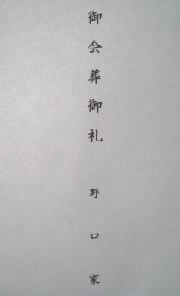 御会葬御礼 野口家